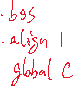 .bss
.align 1
global C